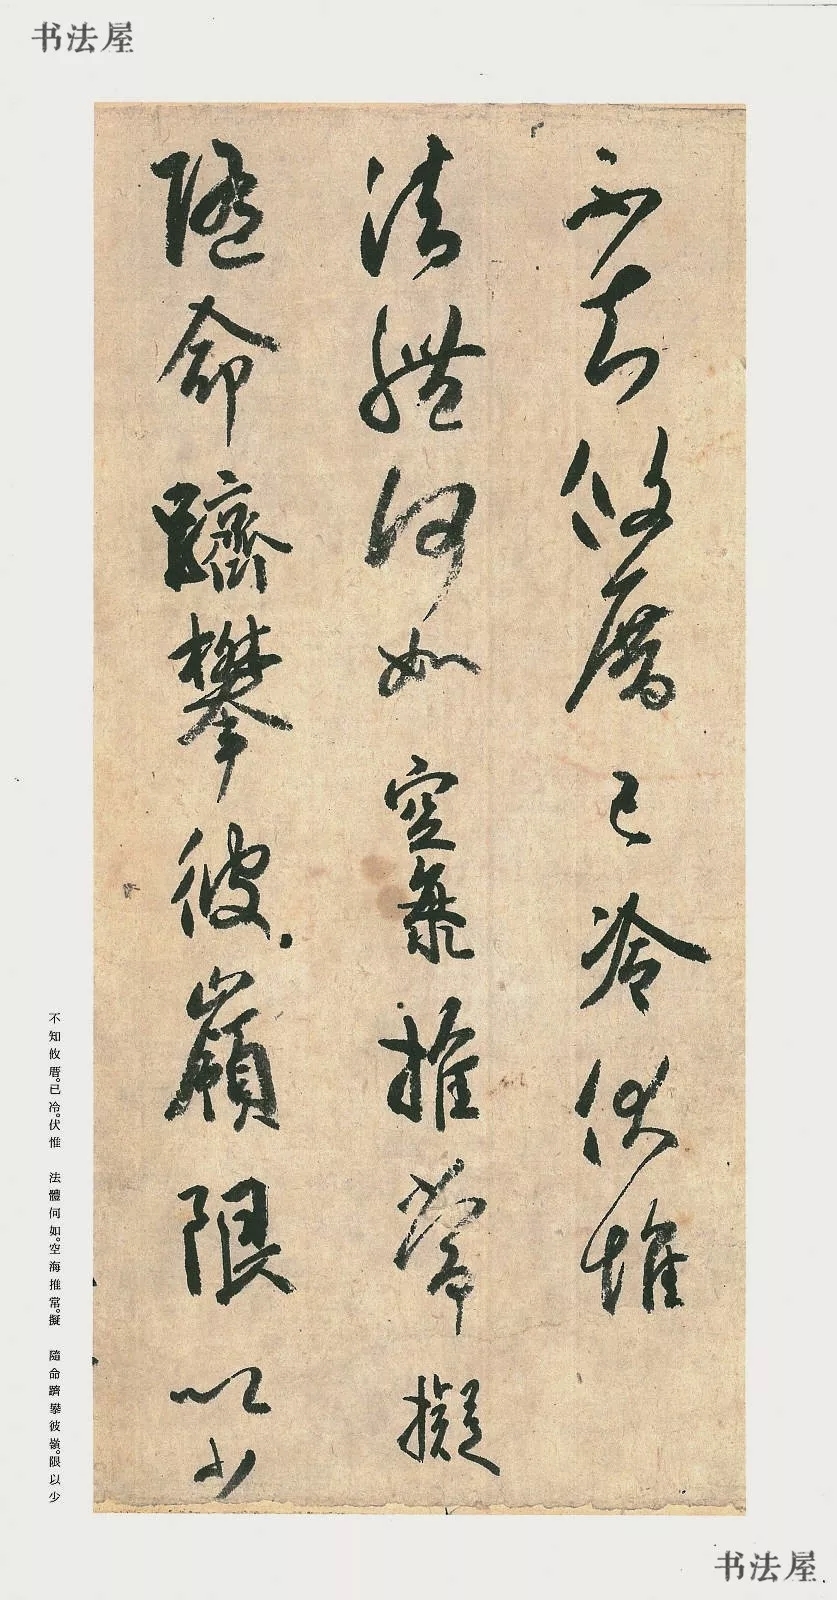 书法屋
不知攸厝已冷伏惟
法體何如空海推常擬
隨命躋攀彼嶺限以少
不知攸厝。已冷。伏惟 法體何如。空海推常。擬 隨命躋攀彼嶺。限以少
书法屋